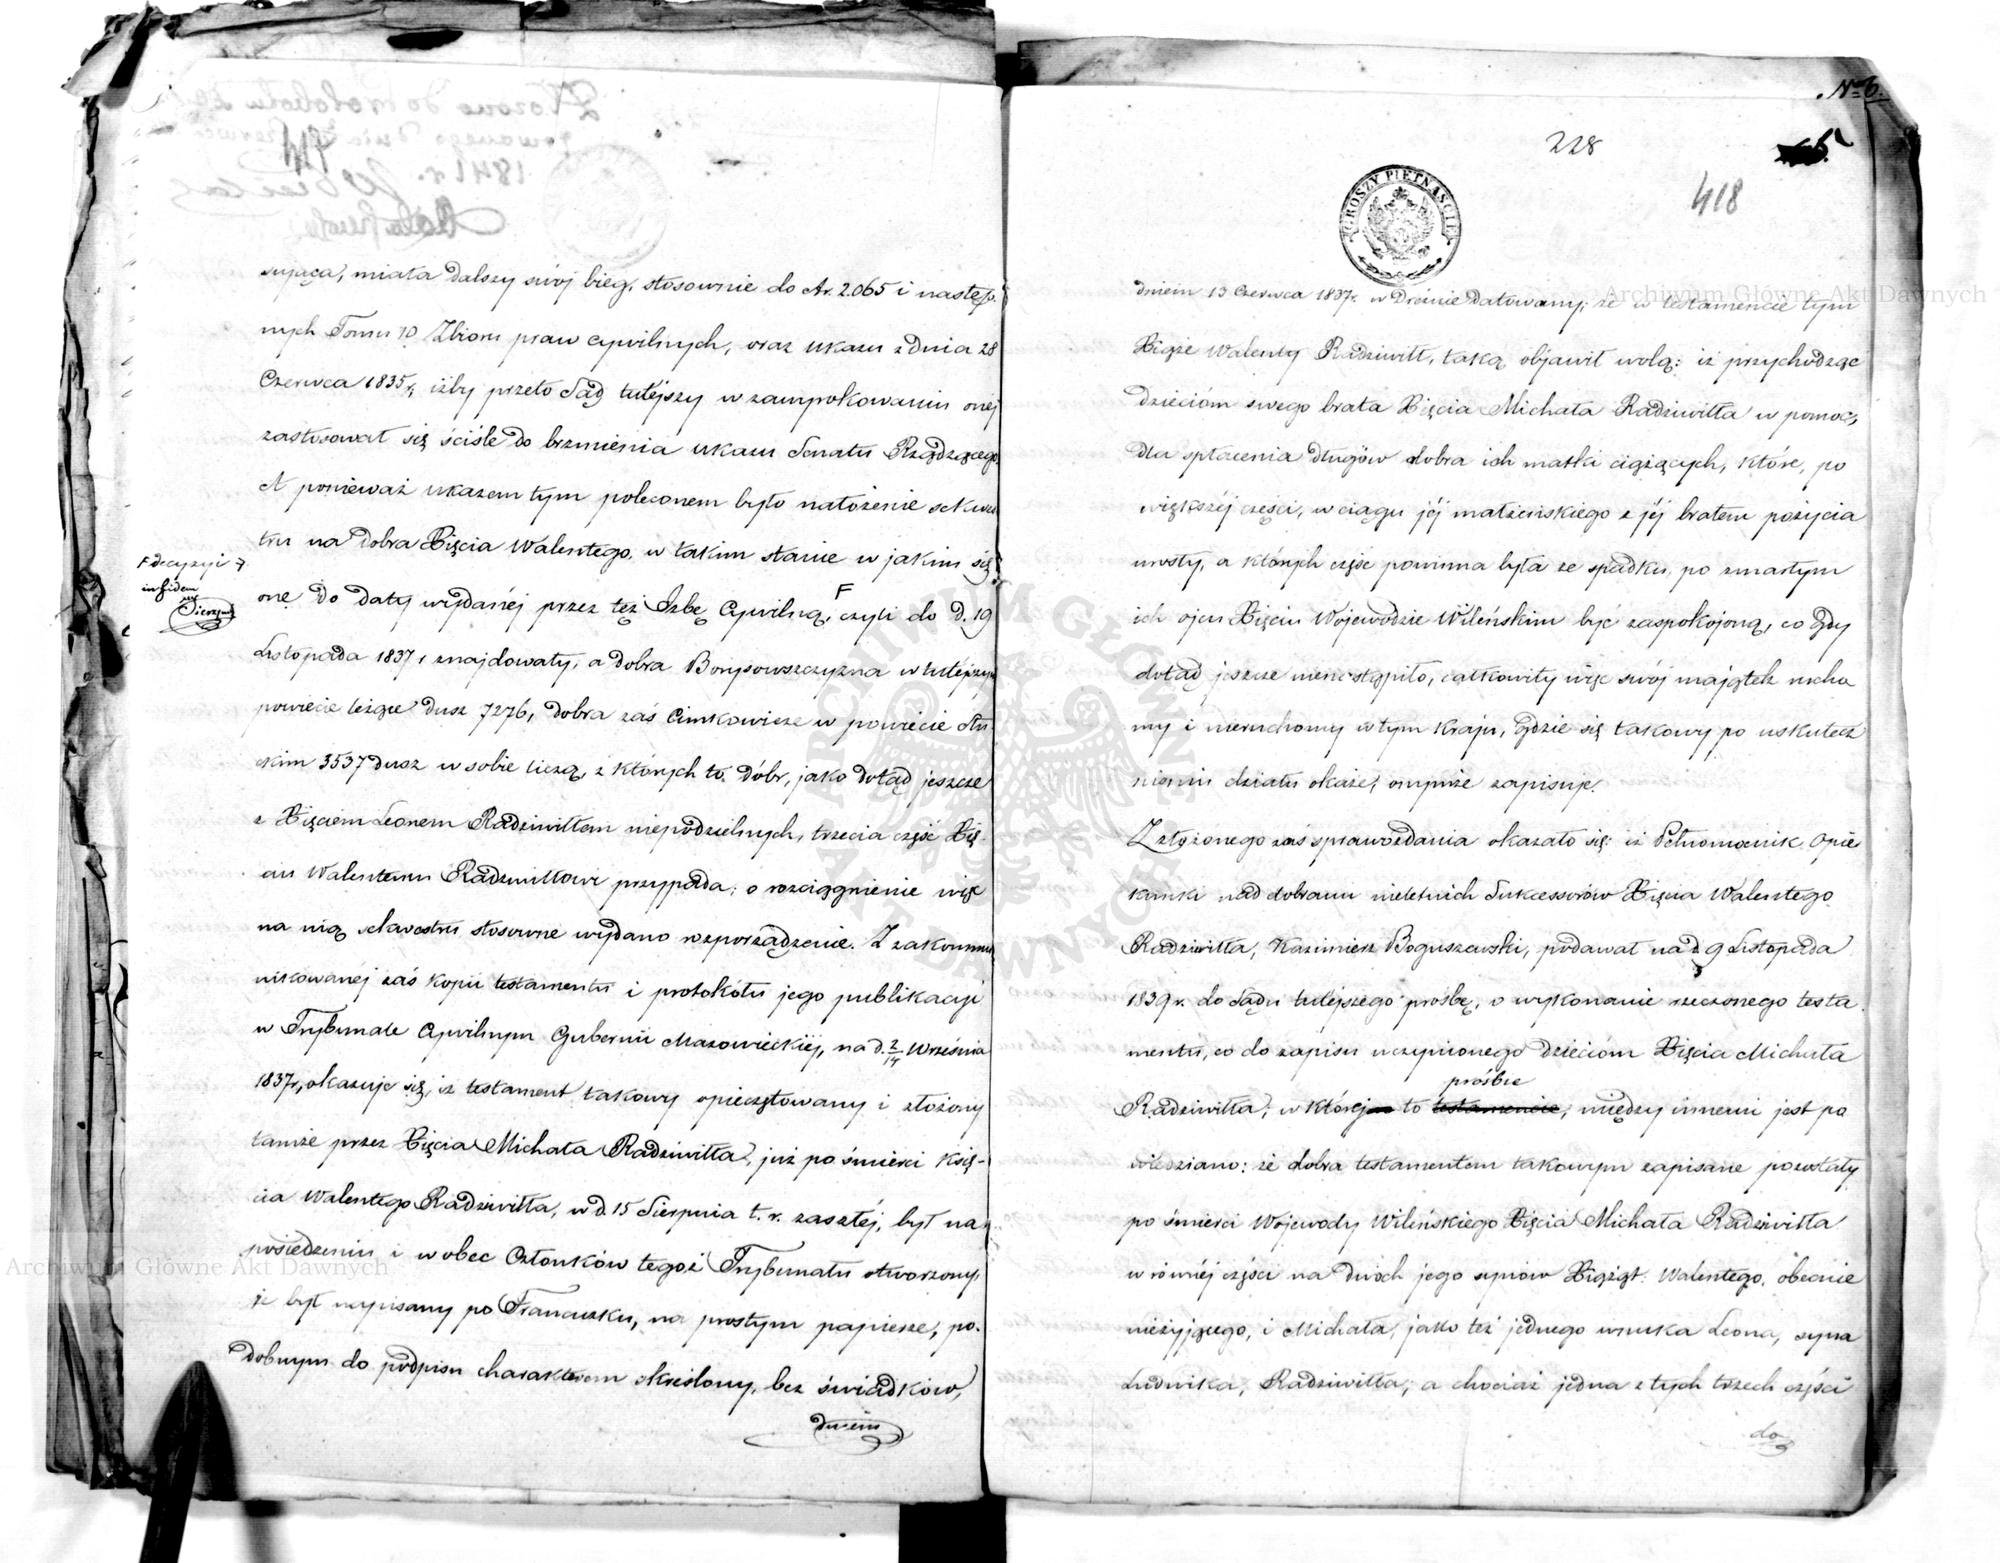 sująca, miała dalszy swój bieg, stosownie do Ar. 2.065 i następ.
nych Tomu 10 Zbioru praw cywilnych, oraz ukazu z dnia 28
Czerwca 1835 r, iżby przeto Sąd tutéjszy w zawyrokowaniu onéj
zastosował się ściśle do brzmienia ukazu Senatu Rządzącego
A ponieważ ukazem tym poleconem było nałożenie sekwes
tru na dobra Xięcia Walentego, w takim stanie w jakim się
F decyzyi 7
in fidem
onę do daty wydanéj przez też Izbę Cywilną, F czyli do d. 19
Listopada 1837, znajdowały, a dobra Borysowszczyzna w tutejszym
powiecie leżące dusz 7276, dobra zaś Cimkowicze w powiecie Słu
ckim 3537 dusz w sobie liczą, z których to dóbr, jako dotąd jeszcze
z Xięciem Leonem Radziwiłłem niepodzielnych, trzecia część Xię-
ciu Walentemu Radziwiłłowi przypada; o rozciągnienie więc
na nią sekwestru stosowne wydano rozporządzenie. Z zakommu
nikowanéj zaś kopii testamentu i protokółu jego publikacyi
w Trybunale Cywilnym Gubernii Mazowieckiéj, na d. 2/14 Września
1837 r, okazuje się, iż testament takowy opieczętowany i złożony
tamże przez Xięcia Michała Radziwiłła, już po śmierci Księ-
cia Walentego Radziwiłła, w d. 15 Sierpnia t. r. zaszłéj, był na
posiedzeniu i w obec Członków tegoż Trybunału otworzony,
że był napisany po Francuzku, na prostym papierze, po-
dobnym do podpisu charakterem skreślony, bez świadków,
dniem
No 6.
228
418
GROSZY PIETNAŚCIE
dniem 13 Czerwca 1837 r. w Dreźnie datowany; że w testamencie tym
Xiąże Walenty Radziwiłł, taką objawił wolą: iż przychodząc
dzieciom swego brata Xięcia Michała Radziwiłła w pomoc,
dla spłacenia długów dobra ich matki ciążących, które, po
większéj części, w ciągu jéj małżeńskiego z jéj bratem pożycia
urosły, a których część powinna była ze spadku, po zmarłym
ich ojcu Xięciu Wojewodzie Wileńskim być zaspokojoną, co gdy
dotąd jeszcze nienastąpiło, całkowity więc swój majątek rucho
my i nieruchomy w tym Kraju, gdzie się takowy po uskutecz
nieniu działu okaże, onymże zapisuje.
Z złożonego zaś sprawozdania okazało się: iż Pełnomocnik Opie
kunki nad dobrami nieletnich Sukcessorów Xięcia Walentego
Radziwiłła, Kazimierz Boguszewski, podawał na d 9 Listopada
1839 r. do Sądu tutéjszego prośbę, o wykonanie rzeczonego testa
mentu, co do zapisu uczynionego dzieciom Xięcia Michała
prośbie
Radziwiłła; w któréj to testamencie, między innemi jest po
wiedziano: że dobra testamentem takowym zapisane pozostały
po śmierci Wojewody Wileńskiego Xięcia Michała Radziwiłła
w równéj części na dwóch jego synów Xiążąt. Walentego, obecnie
nieżyjącego, i Michała, jako też jednego wnuka Leona, syna
Ludwika, Radziwiłła; a chociaż jedna z tych trzech części
do
Archiwum Główne Akt Dawnych
Archiwum Główne Akt Dawnych
ARCHIWUM GŁÓWNE AKT DAWNYCH